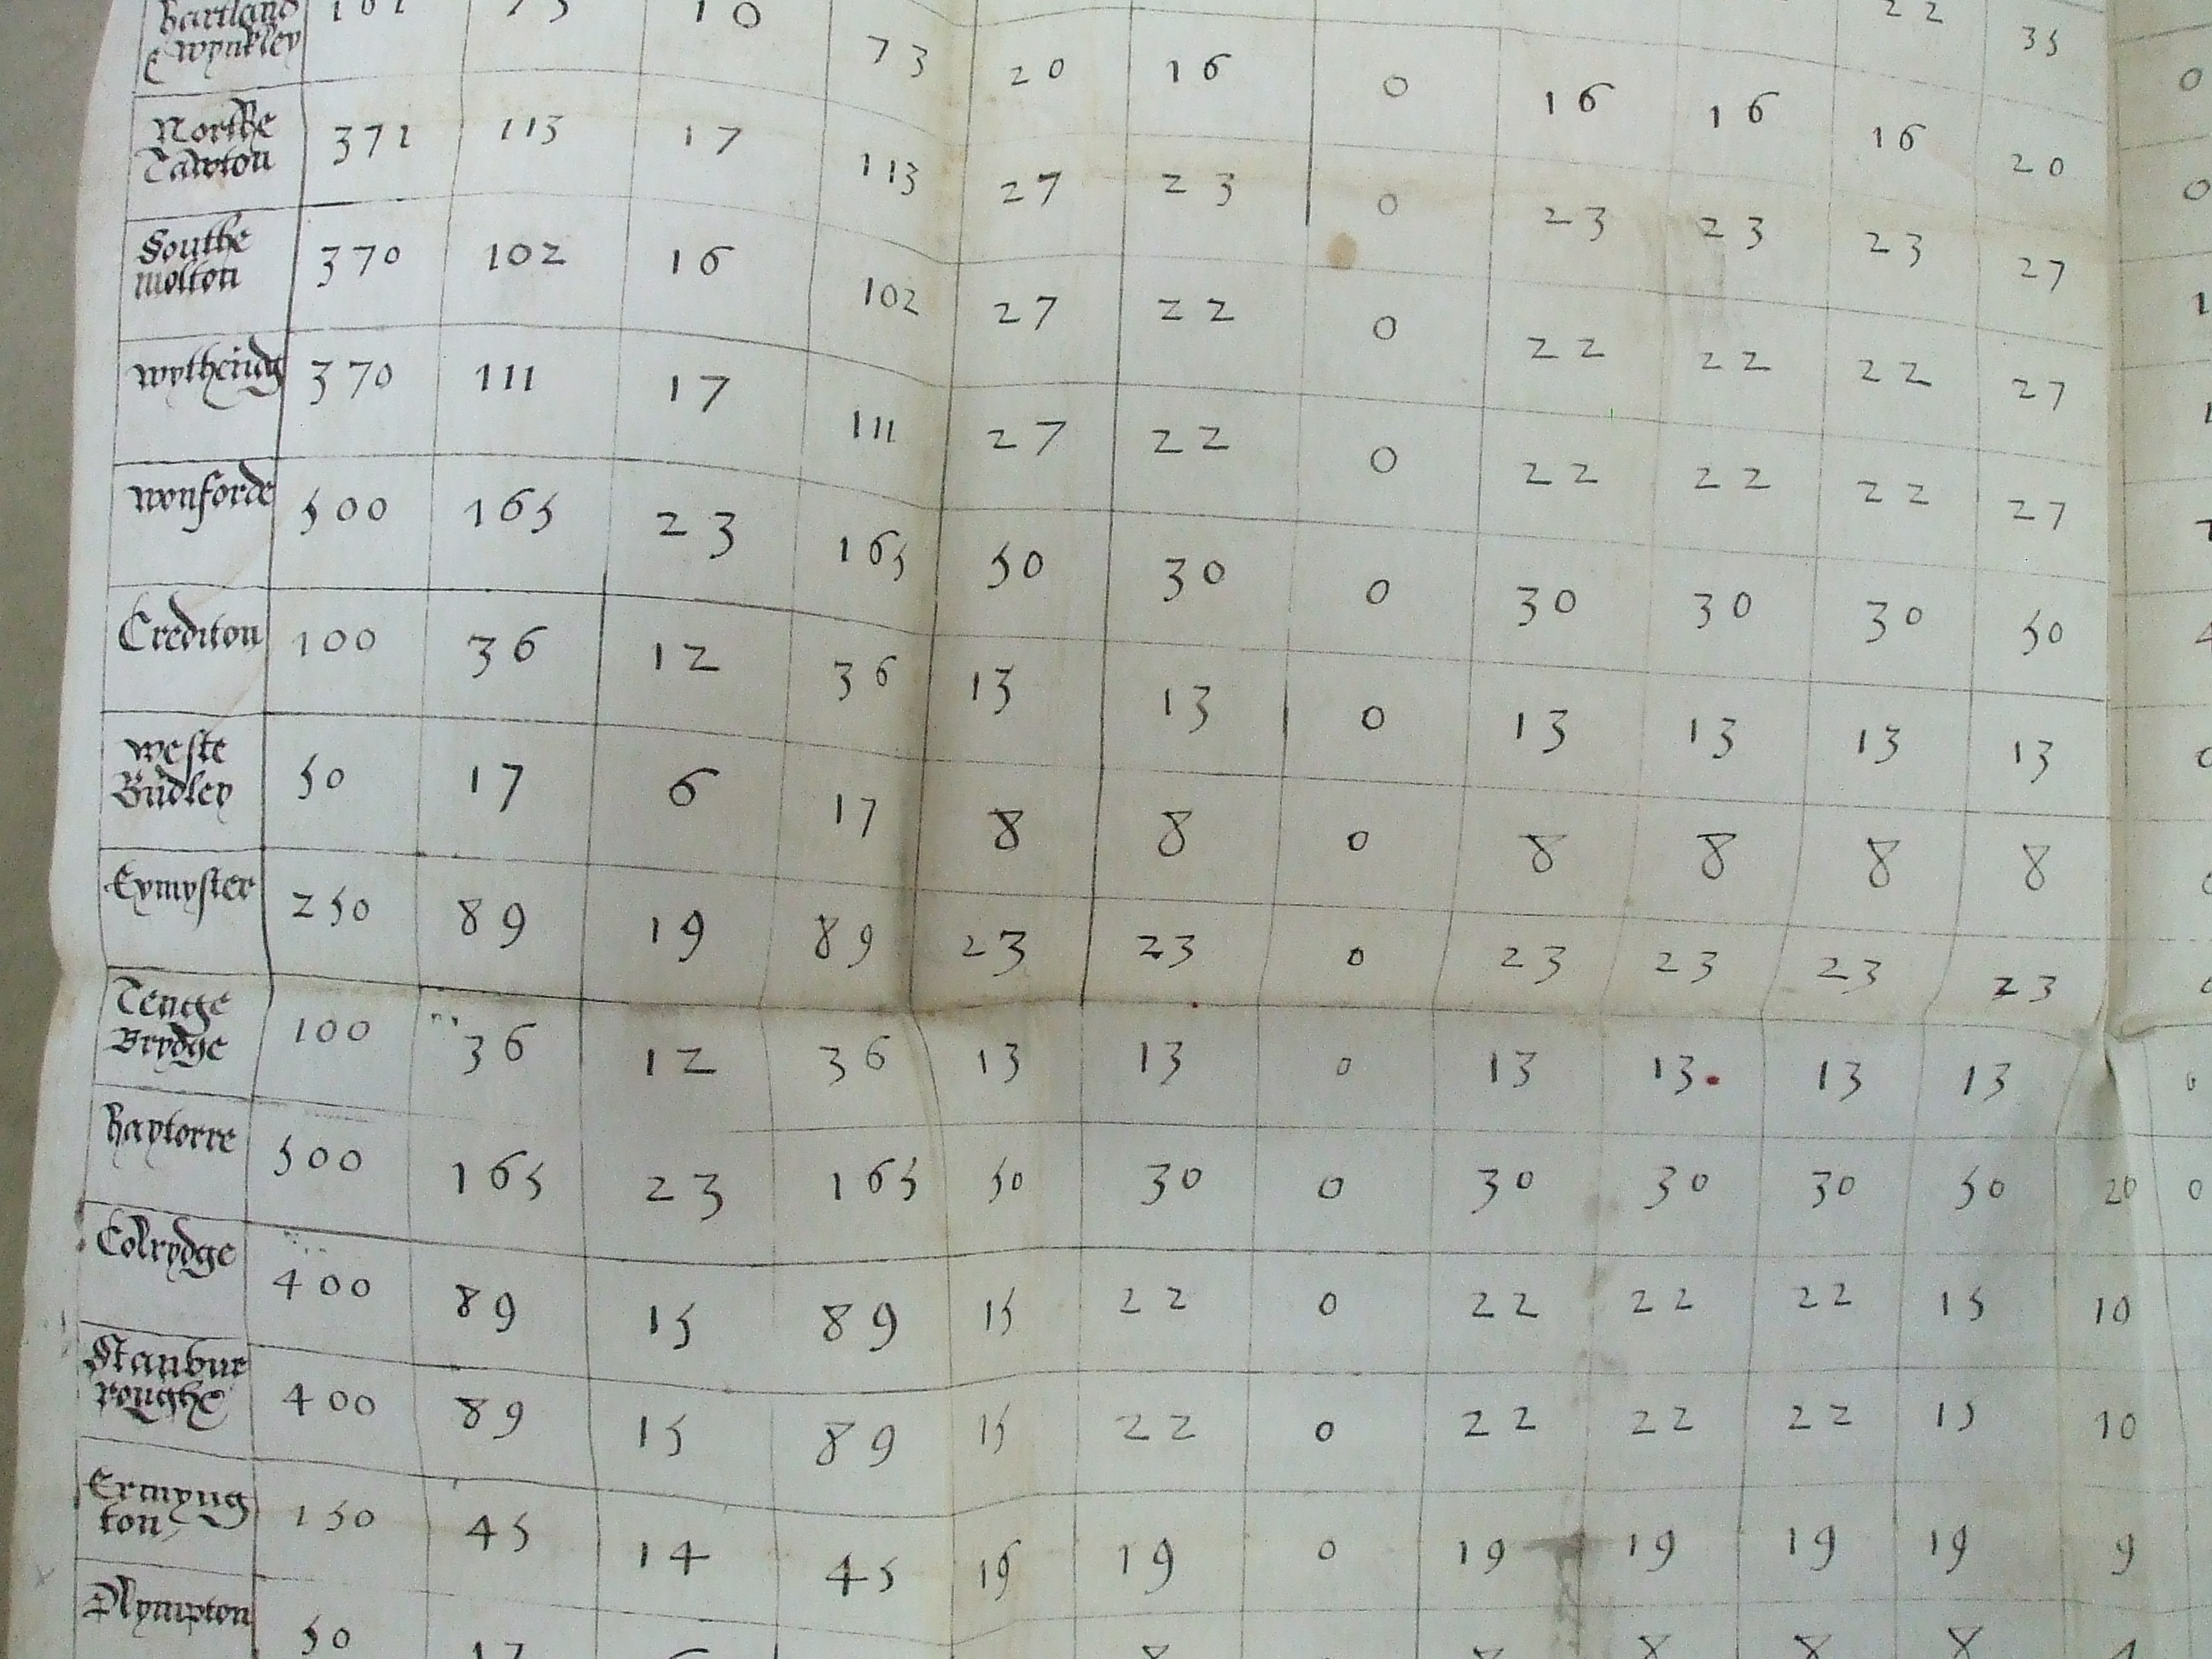 hartland 73 10 22 35
& wynkley 73 20 16 0 16 16 16 20 0
Northe
Tawton 371 113 17 113 27 23 0 23 23 23 27 0
Southe
molton 370 102 16 102 27 22 0 22 22 22 27 1
wytheridg 370 111 17 111 27 22 0 22 22 22 27
wonforde 500 165 23 165 50 30 0 30 30 30 50
Crediton 100 36 12 36 13 13 0 13 13 13 13
weste
Budley 50 17 6 17 8 8 0 8 8 8 8
Exmyster 250 89 19 89 23 23 0 23 23 23 23
Tenge
Brydge 100 36 12 36 13 13 0 13 13 13 13 0
haytorre 500 165 23 165 50 30 0 30 30 30 50 20 0
Colrydge 400 89 15 89 15 22 0 22 22 22 15 10
Stanbur
roughe 400 89 15 89 15 22 0 22 22 22 15 10
Ermyng
ton 150 45 14 45 19 19 0 19 19 19 19 9
Plympton 50 17 6 8 8 8 8 8